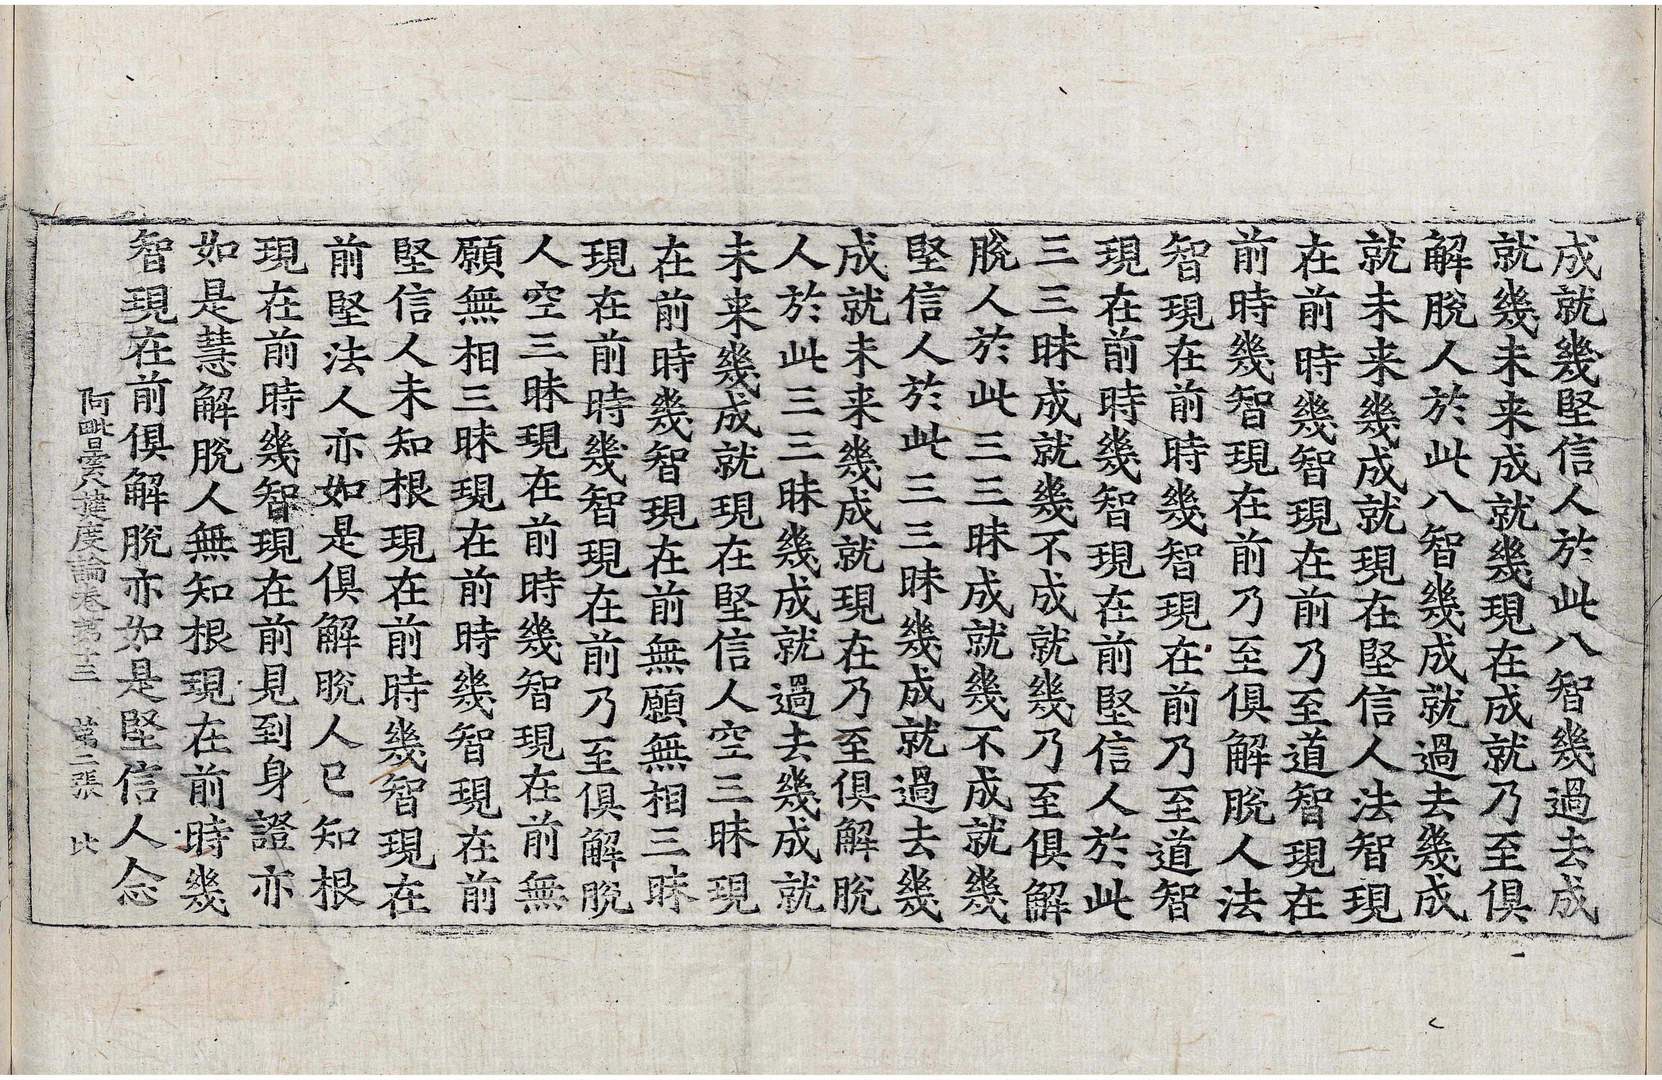 成就幾堅信人於此八智幾過去成
就幾未来成就幾現在成就乃至俱
解脫人於此八智幾成就過去幾成
就未来幾成就現在堅信人法智現
在前時幾智現在前乃至道智現在
前時幾智現在前乃至俱解脫人法
智現在前時幾智現在前乃至道智
現在前時幾智現在前堅信人於此
三三昧成就幾不成就幾乃至俱解
脫人於此三三昧成就幾不成就幾
堅信人於此三三昧幾成就過去幾
成就未来幾成就現在乃至俱解脫
人於此三三昧幾成就過去幾成就
未来幾成就現在堅信人空三昧現
在前時幾智現在前無願無相三昧
現在前時幾智現在前乃至俱解脫
人空三昧現在前時幾智現在前無
願無相三昧現在前時幾智現在前
堅信人未知根現在前時幾智現在
前堅法人亦如是俱解脫人已知根
現在前時幾智現在前見到身證亦
如是慧解脫人無知根現在前時幾
智現在前俱解脫亦如是堅信人念
阿毗曇八揵度論卷第十三 第二張